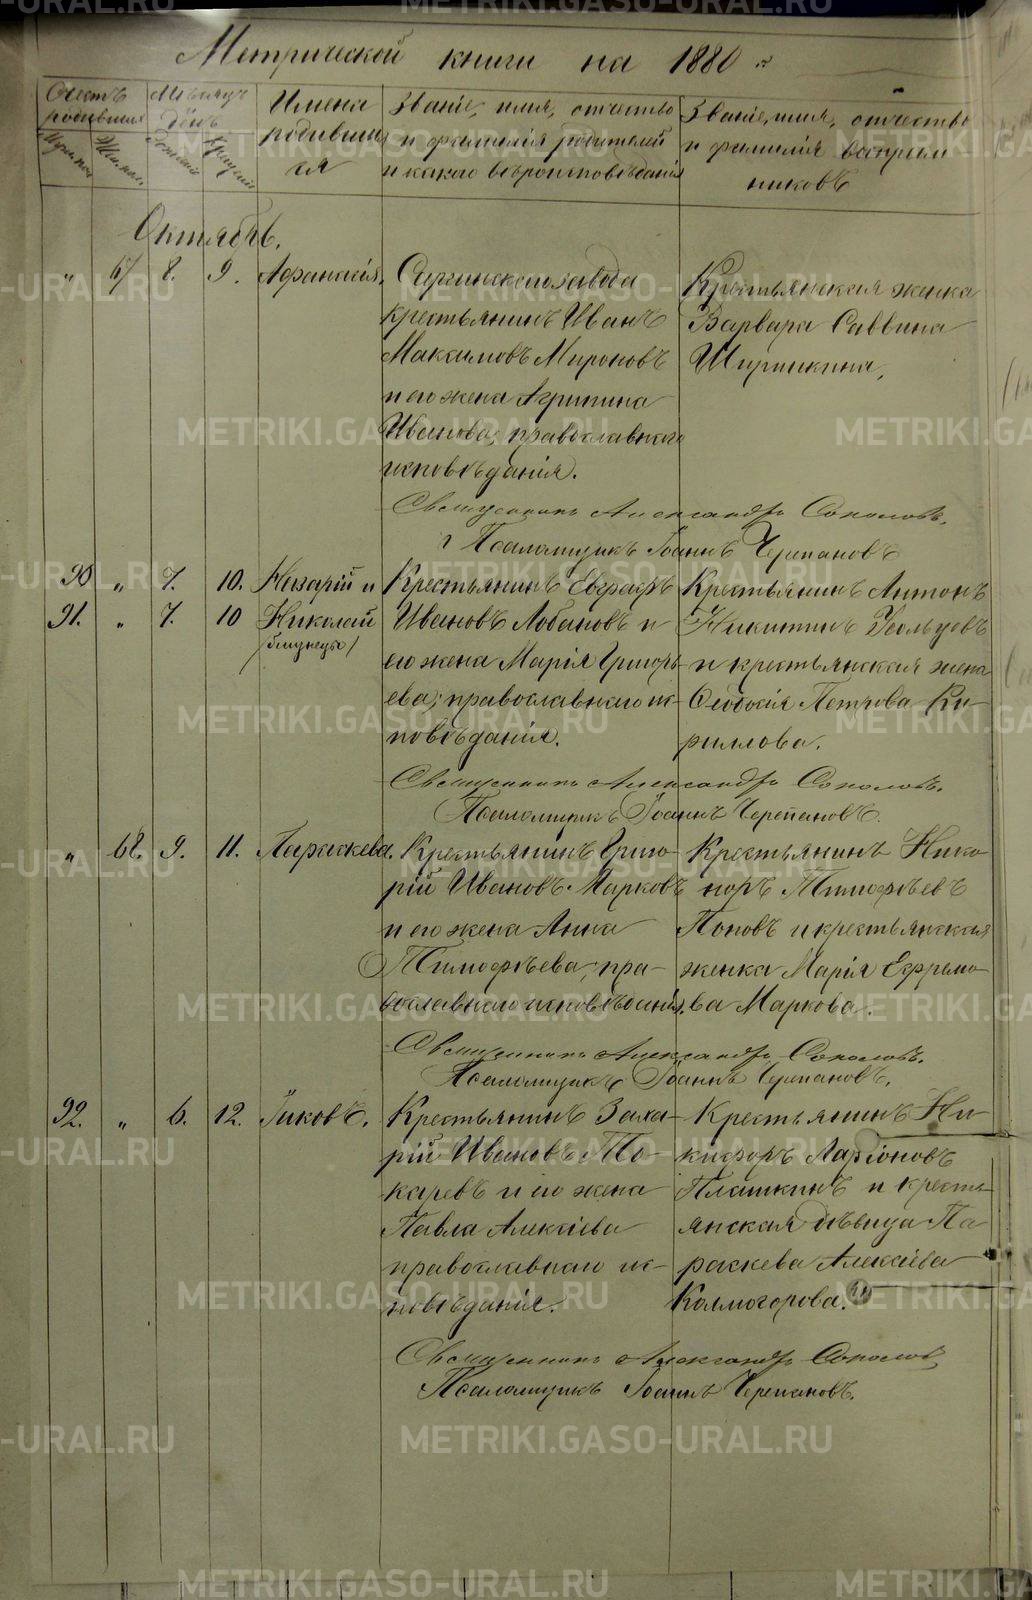 Метрической книги на 1880 г.
Счетъ родившихся
Мужеска
Женска
Мѣсяцъ день
Рожденія
Крещенія
Имена родившихся
Званіе, имя, отчество
и фамилія родителей
и какого вѣроисповѣданія
Званіе, имя, отчество
и фамилія воспріем
никовъ
Октябрь.
„ 67 8. 9. Афанасія.
Сергинскаго завода
крестьянинъ Иванъ
Максимовъ Мироновъ
и его жена Агрипина
Иванова, православнаго
исповѣданія.
Крестьянская женка
Варвара Саввина
Ширинкина.
Священникъ Александръ Соколовъ.
Псаломщикъ Іоаннъ Черепановъ
90 „ 7. 10. Назарій и
91. „ 7. 10 Николай
(близнецы)
Крестьянинъ Евграфъ
Ивановъ Лобановъ и
его жена Марія Григорь
ева, православнаго ис-
повѣданія.
Крестьянинъ Антонъ
Никитинъ
и крестьянская жена
Ѳеодосія Петрова Ки-
риллова.
Священникъ Александръ Соколовъ.
Псаломщикъ Іоаннъ Черепановъ.
„ 68. 9. 11. Параскева.
Крестьянинъ Григо-
рій Ивановъ Марковъ
и его жена Анна
Тимофѣева, пра-
вославнаго исповѣданія.
Крестьянинъ Нико-
норъ Тимофѣевъ
Поповъ и крестьянская
женка Марія Ефремо-
ва Маркова.
Священникъ Александръ Соколовъ.
Псаломщикъ Іоаннъ Черепановъ.
92. „ 6. 12. Іаковъ.
Крестьянинъ Заха-
рій Ивановъ То-
каревъ и его жена
Павла Алексіева
православнаго ис-
повѣданія.
Крестьянинъ Ни-
кифоръ Ларіоновъ
Плашкинъ и кресть-
янская дѣвица Па
раскева Алексіева
Колмогорова.
Священникъ Александръ Соколовъ
Псаломщикъ Іоаннъ Черепановъ.
METRIKI.GASO-URAL.RU